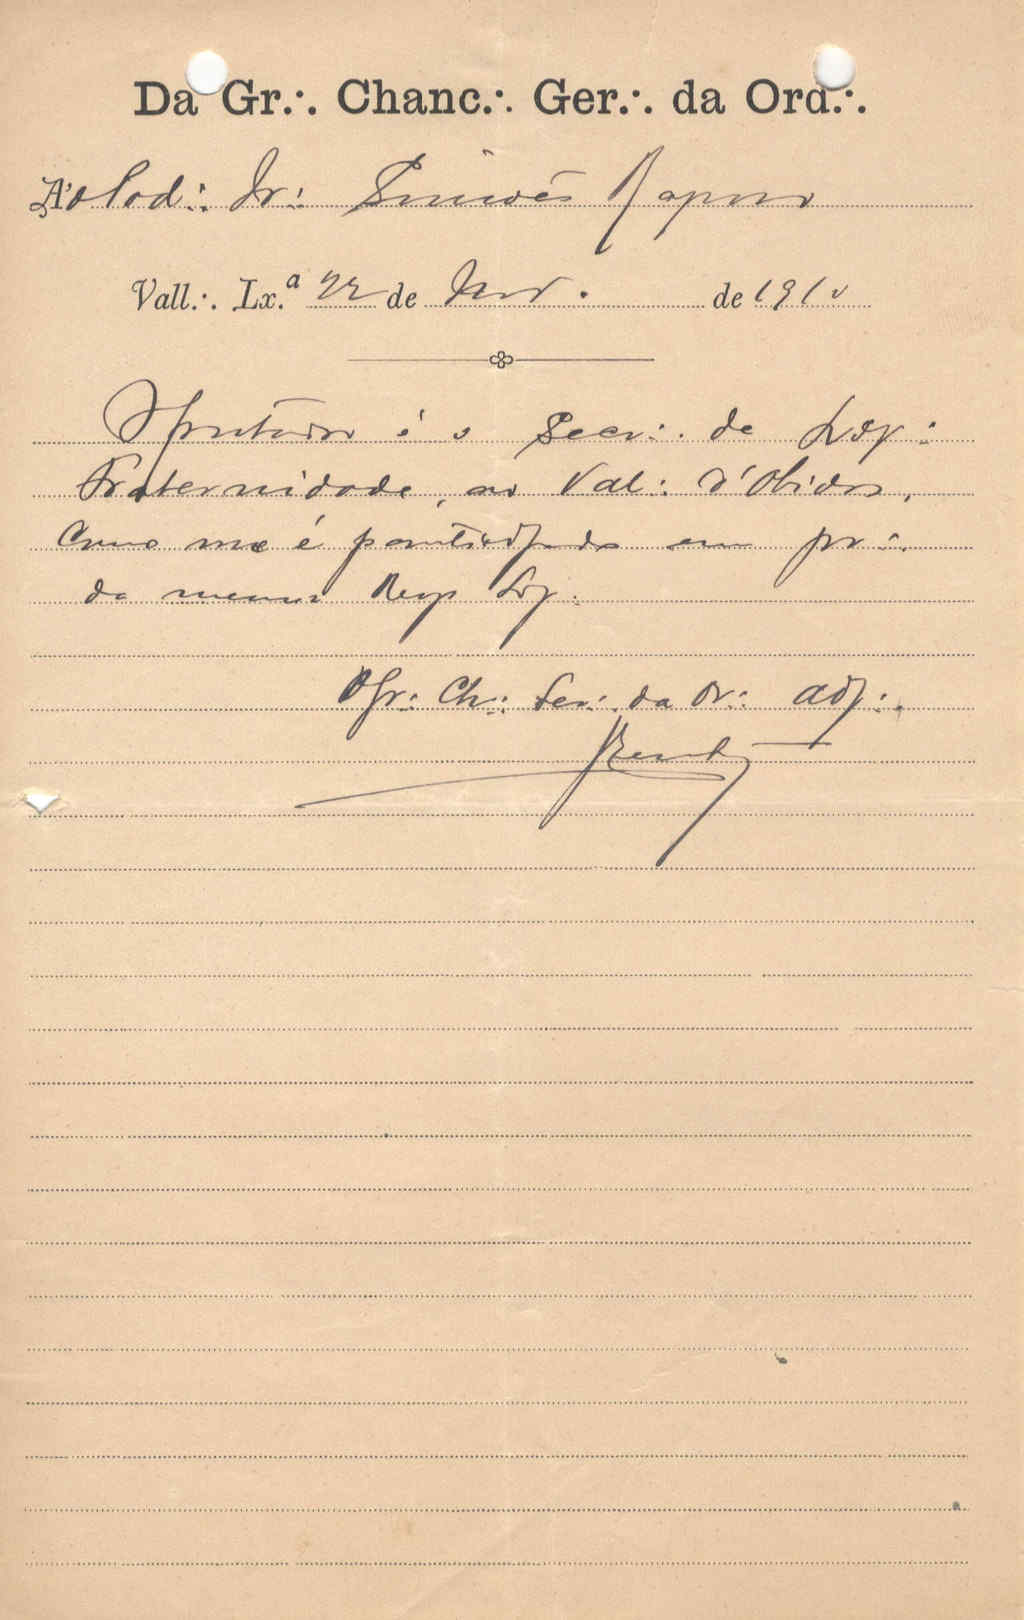 Da Gr∴ Chanc∴ Ger∴ da Ord∴
A'o Pod∴ Ir∴ Simões Raposo
Vall∴ Lx.ª 22 de Nov. de 1910
O portador é o Secr∴ da Loj∴
Fraternidade, no Val∴ d'Obidos,
Como me é participado em pr∴
da mesma Resp Loj∴
O Gr∴ Ch∴ Ger∴ da Or∴ adj∴